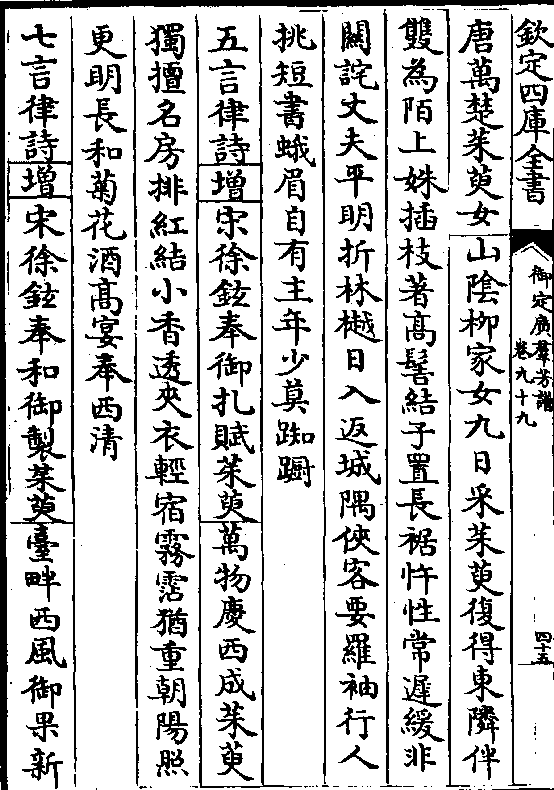 欽定四庫全書
御定廣羣芳譜
卷九十九
四十五
唐萬楚茱萸女山陰柳家女九日采茱萸復得東隣伴
雙為陌上姝插枝著髙髻結子置長裾忤性常遲緩非
闗詫丈夫平明折林樾日入返城隅俠客要羅袖行人
挑短書蛾眉自有主年少莫踟蹰
五言律詩增宋徐鉉奉御札賦茱萸萬物慶西成茱萸
獨擅名房排紅結小香透夾衣輕宿霧霑猶重朝陽照
更明長和菊花酒髙宴奉西清
七言律詩增宋徐鉉奉和御製茱萸臺畔西風御果新